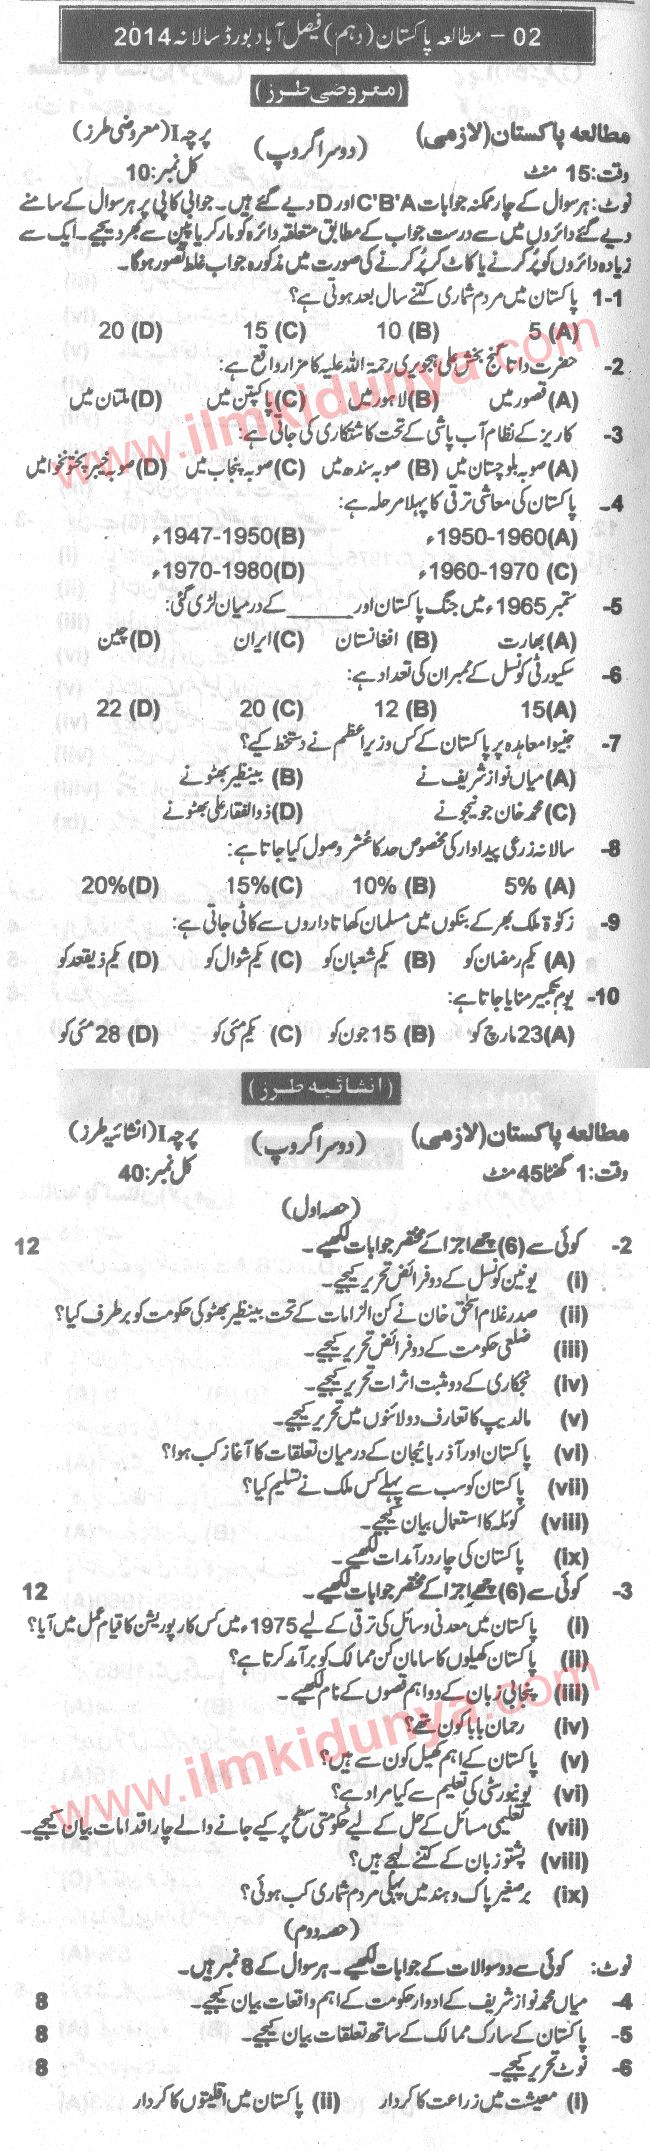 02 - مطالعہ پاکستان (دہم) فیصل آباد بورڈ سالانہ 2014
(معروضی طرز)
مطالعہ پاکستان (لازمی) (دوسرا گروپ) پرچہ I (معروضی طرز)
وقت: 15 منٹ کل نمبر: 10
نوٹ: ہر سوال کے چار ممکنہ جوابات C'B'A اور D دیے گئے ہیں۔ جوابی کاپی پر ہر سوال کے سامنے
دیے گئے دائروں میں سے درست جواب کے مطابق متعلقہ دائرہ کو مارکر یا پین سے بھر دیجیے۔ ایک سے
زیادہ دائروں کو پُر کرنے یا کاٹ کر پُر کرنے کی صورت میں مذکورہ جواب غلط تصور ہوگا۔
1-1 پاکستان میں مردم شماری کتنے سال بعد ہوتی ہے؟
(A) 5 (B) 10 (C) 15 (D) 20
2- حضرت داتا گنج بخش علی ہجویری رحمۃ اللہ علیہ کا مزار واقع ہے:
(A) قصور میں (B) لاہور میں (C) پاکپتن میں (D) ملتان میں
3- کاریز کے نظام آب پاشی کے تحت کاشتکاری کی جاتی ہے:
(A) صوبہ بلوچستان میں (B) صوبہ سندھ میں (C) صوبہ پنجاب میں (D) صوبہ خیبر پختونخوا میں
4۔ پاکستان کی معاشی ترقی کا پہلا مرحلہ ہے:
(A) 1950-1960ء (B) 1947-1950ء
(C) 1960-1970ء (D) 1970-1980ء
5- ستمبر 1965ء میں جنگ پاکستان اور ______ کے درمیان لڑی گئی:
(A) بھارت (B) افغانستان (C) ایران (D) چین
6- سکیورٹی کونسل کے ممبران کی تعداد ہے:
(A) 15 (B) 12 (C) 20 (D) 22
7- جنیوا معاہدہ پر پاکستان کے کس وزیر اعظم نے دستخط کیے؟
(A) میاں نواز شریف نے (B) بینظیر بھٹو نے
(C) محمد خان جونیجو نے (D) ذوالفقار علی بھٹو نے
8- سالانہ زرعی پیداوار کی مخصوص حد کا عشر وصول کیا جاتا ہے:
(A) 5% (B) 10% (C) 15% (D) 20%
9- زکوٰۃ ملک بھر کے بنکوں میں مسلمان کھاتا داروں سے کاٹی جاتی ہے:
(A) یکم رمضان کو (B) یکم شعبان کو (C) یکم شوال کو (D) یکم ذیقعد کو
10- یوم تکبیر منایا جاتا ہے:
(A) 23 مارچ کو (B) 15 جون کو (C) یکم مئی کو (D) 28 مئی کو
(انشائیہ طرز)
مطالعہ پاکستان (لازمی) (دوسرا گروپ) پرچہ I (انشائیہ طرز)
وقت: 1 گھنٹا 45 منٹ کل نمبر: 40
(حصہ اول)
2- کوئی سے (6) چھے اجزا کے مختصر جوابات لکھیے۔ 12
(i) یونین کونسل کے دو فرائض تحریر کیجیے۔
(ii) صدر غلام اسحٰق خان نے کن الزامات کے تحت بینظیر بھٹو کی حکومت کو برطرف کیا؟
(iii) ضلعی حکومت کے دو فرائض تحریر کیجیے۔
(iv) نجکاری کے دو مثبت اثرات تحریر کیجیے۔
(v) مالدیپ کا تعارف دو لائنوں میں تحریر کیجیے۔
(vi) پاکستان اور آذربائیجان کے درمیان تعلقات کا آغاز کب ہوا؟
(vii) پاکستان کو سب سے پہلے کس ملک نے تسلیم کیا؟
(viii) کوئلہ کا استعمال بیان کیجیے۔
(ix) پاکستان کی چار درآمدات لکھیے۔
3- کوئی سے (6) چھے اجزا کے مختصر جوابات لکھیے۔ 12
(i) پاکستان میں معدنی وسائل کی ترقی کے لیے 1975ء میں کس کارپوریشن کا قیام عمل میں آیا؟
(ii) پاکستان کھیلوں کا سامان کن ممالک کو برآمد کرتا ہے؟
(iii) پنجابی زبان کے دو اہم قصوں کے نام لکھیے۔
(iv) رحمان بابا کون تھے؟
(v) پاکستان کے اہم کھیل کون سے ہیں؟
(vi) یونیورسٹی کی تعلیم سے کیا مراد ہے؟
(vii) تعلیمی مسائل کے حل کے لیے حکومتی سطح پر کیے جانے والے چار اقدامات بیان کیجیے۔
(viii) پشتو زبان کے کتنے لہجے ہیں؟
(ix) برصغیر پاک و ہند میں پہلی مردم شماری کب ہوئی؟
(حصہ دوم)
نوٹ: کوئی سے دو سوالات کے جوابات لکھیے۔ ہر سوال کے 8 نمبر ہیں۔
4- میاں محمد نواز شریف کے ادوار حکومت کے اہم واقعات بیان کیجیے۔ 8
5- پاکستان کے سارک ممالک کے ساتھ تعلقات بیان کیجیے۔ 8
6- نوٹ تحریر کیجیے۔ 8
(i) معیشت میں زراعت کا کردار (ii) پاکستان میں اقلیتوں کا کردار
www.ilmkidunya.com
www.ilmkidunya.com